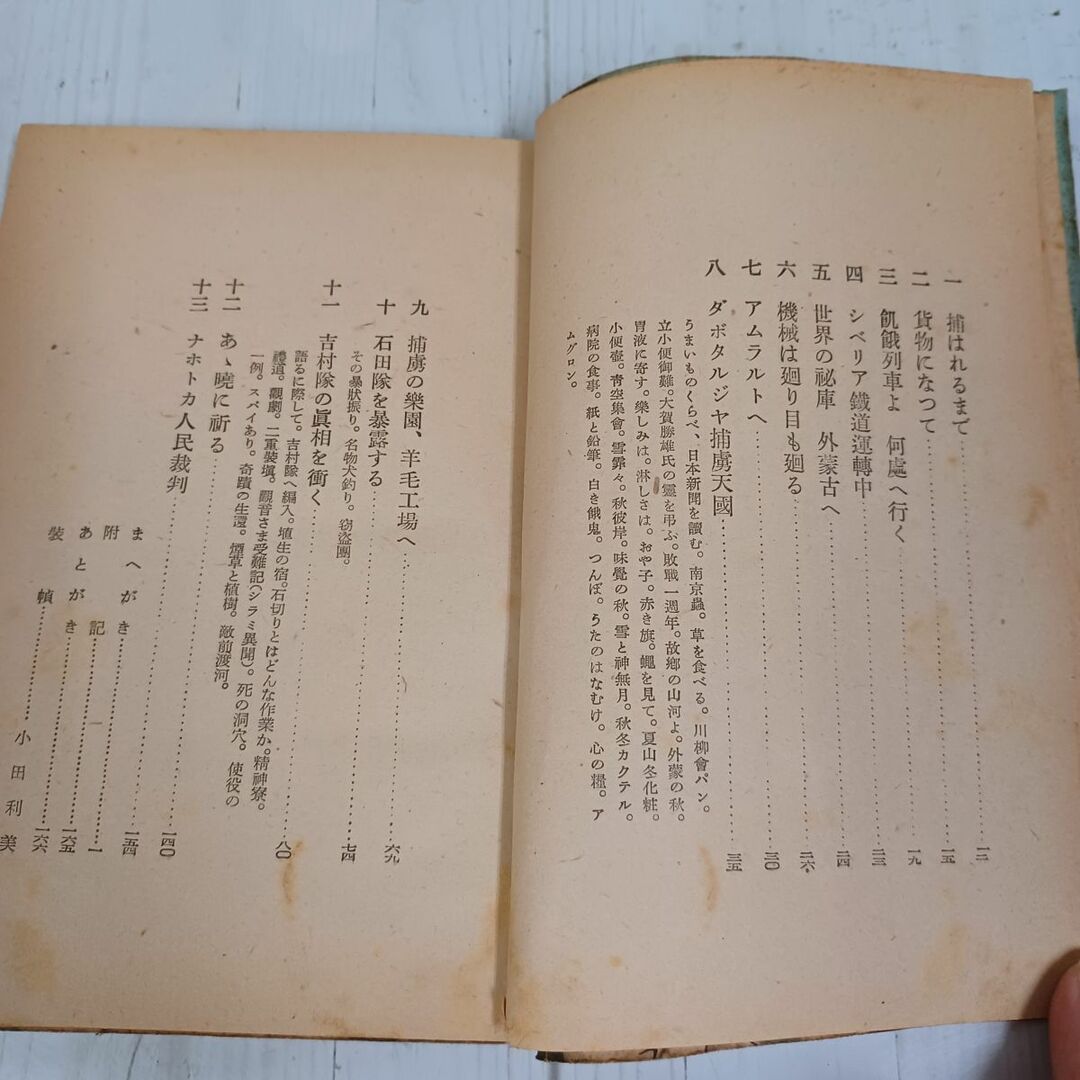 一 捕はれるまで……一二
二 貨物になつて……一五
三 飢餓列車よ 何處へ行く……一九
四 シベリア鐵道運轉中……二三
五 世界の祕庫 外蒙古へ……二四
六 機械は廻り目も廻る……二六
七 アムラルトへ……三〇
八 ダボタルジヤ捕虜天國……三五
うまいものくらべ、日本新聞を讀む。南京蟲。草を食べる。川柳會パン。
立小便御難。大賀勝雄氏の靈を弔ふ。敗戰一週年。故鄕の山河よ。外蒙の秋。
胃液に寄す。樂しみは。淋しさは。おや子。赤き旗。蠅を見て。夏山冬化粧。
小便壺。靑空集會。雪霏々。秋彼岸。味覺の秋。雪と神無月。秋冬カクテル。
病院の食事。紙と鉛筆。白き餓鬼。つんぼ。うたのはなむけ。心の糧。ア
ムグロン。
九 捕虜の樂園、羊毛工場へ……六九
十 石田隊を暴露する……七四
その暴狀振り。名物犬釣り。竊盜團。
十一 吉村隊の眞相を衝く……八〇
語るに際して。吉村隊へ編入。埴生の宿。石切りとはどんな作業か。精神寮。
禮道。觀劇。二重裝塡。觀音さま受難記(シラミ異聞)。死の洞穴。使役の
一例。スパイあり。奇蹟の生還。煙草と植樹。敵前渡河。
十二 あゝ曉に祈る
十三 ナホトカ人民裁判……一四〇
まへがき……一五四
附記……一
あとがき……一六五
裝幀……小田利美
一六六